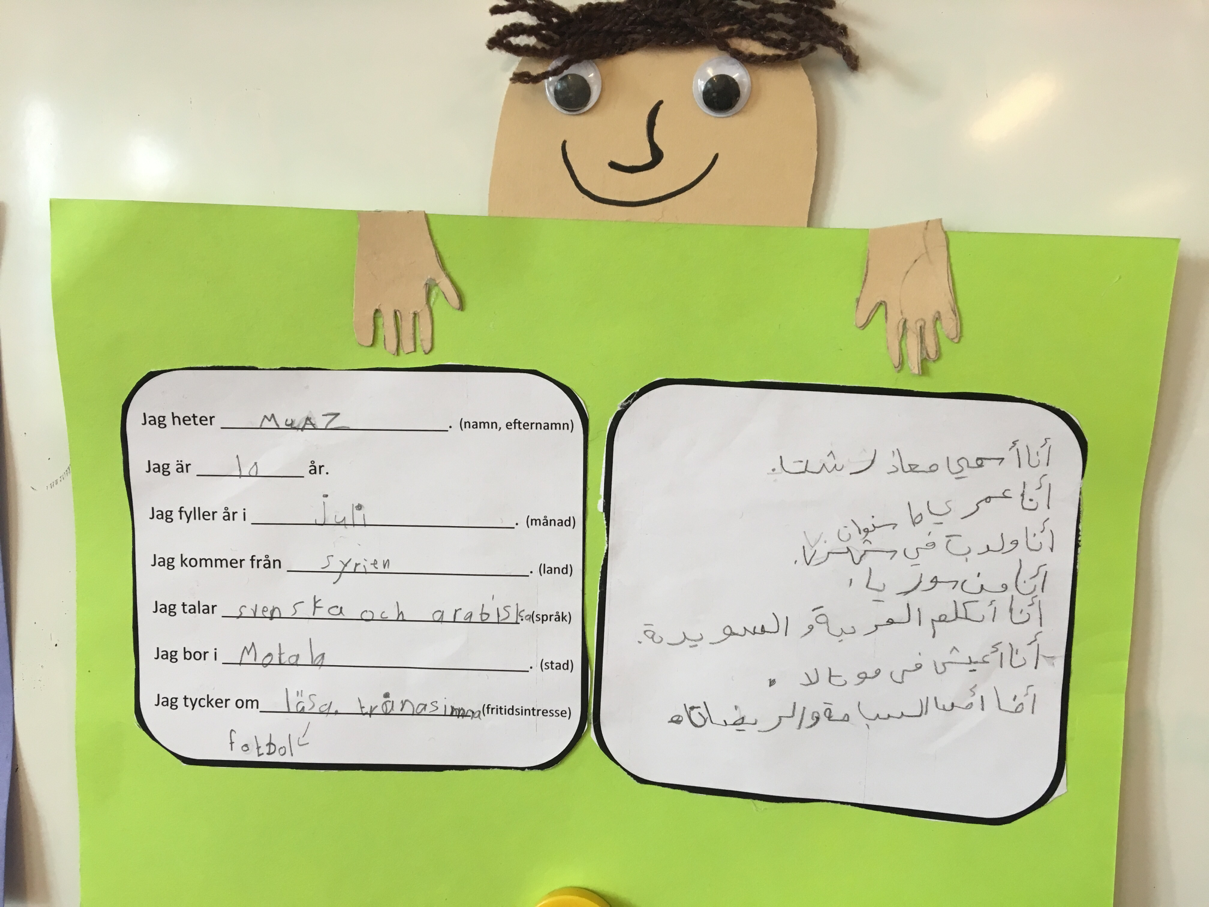 Jag heter MuAZ. (namn, efternamn)
Jag är 10 år.
Jag fyller år i Juli. (månad)
Jag kommer från syrien. (land)
Jag talar svenska och arabiska. (språk)
Jag bor i Motala. (stad)
Jag tycker om läsa. tränasimma (fritidsintresse)
fotbol
أنا أسمي معاذ شتا.
أنا عمر سنوان
أنا ولدت في
أنا من سوريا.
أنا أتكلم العربية و السويدية.
أنا أعيش في موتالا.
أنا السباحة والريضاتاه